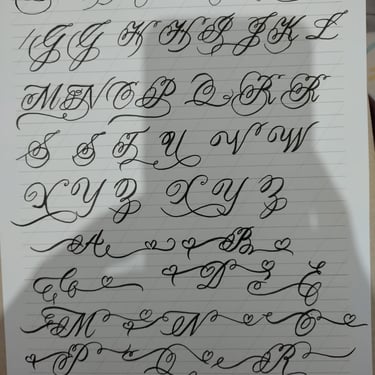 G G H H I J K L
M N O P Q R R
S S T U V W
X Y Z X Y Z
A B
C D E
M N O
P Q R